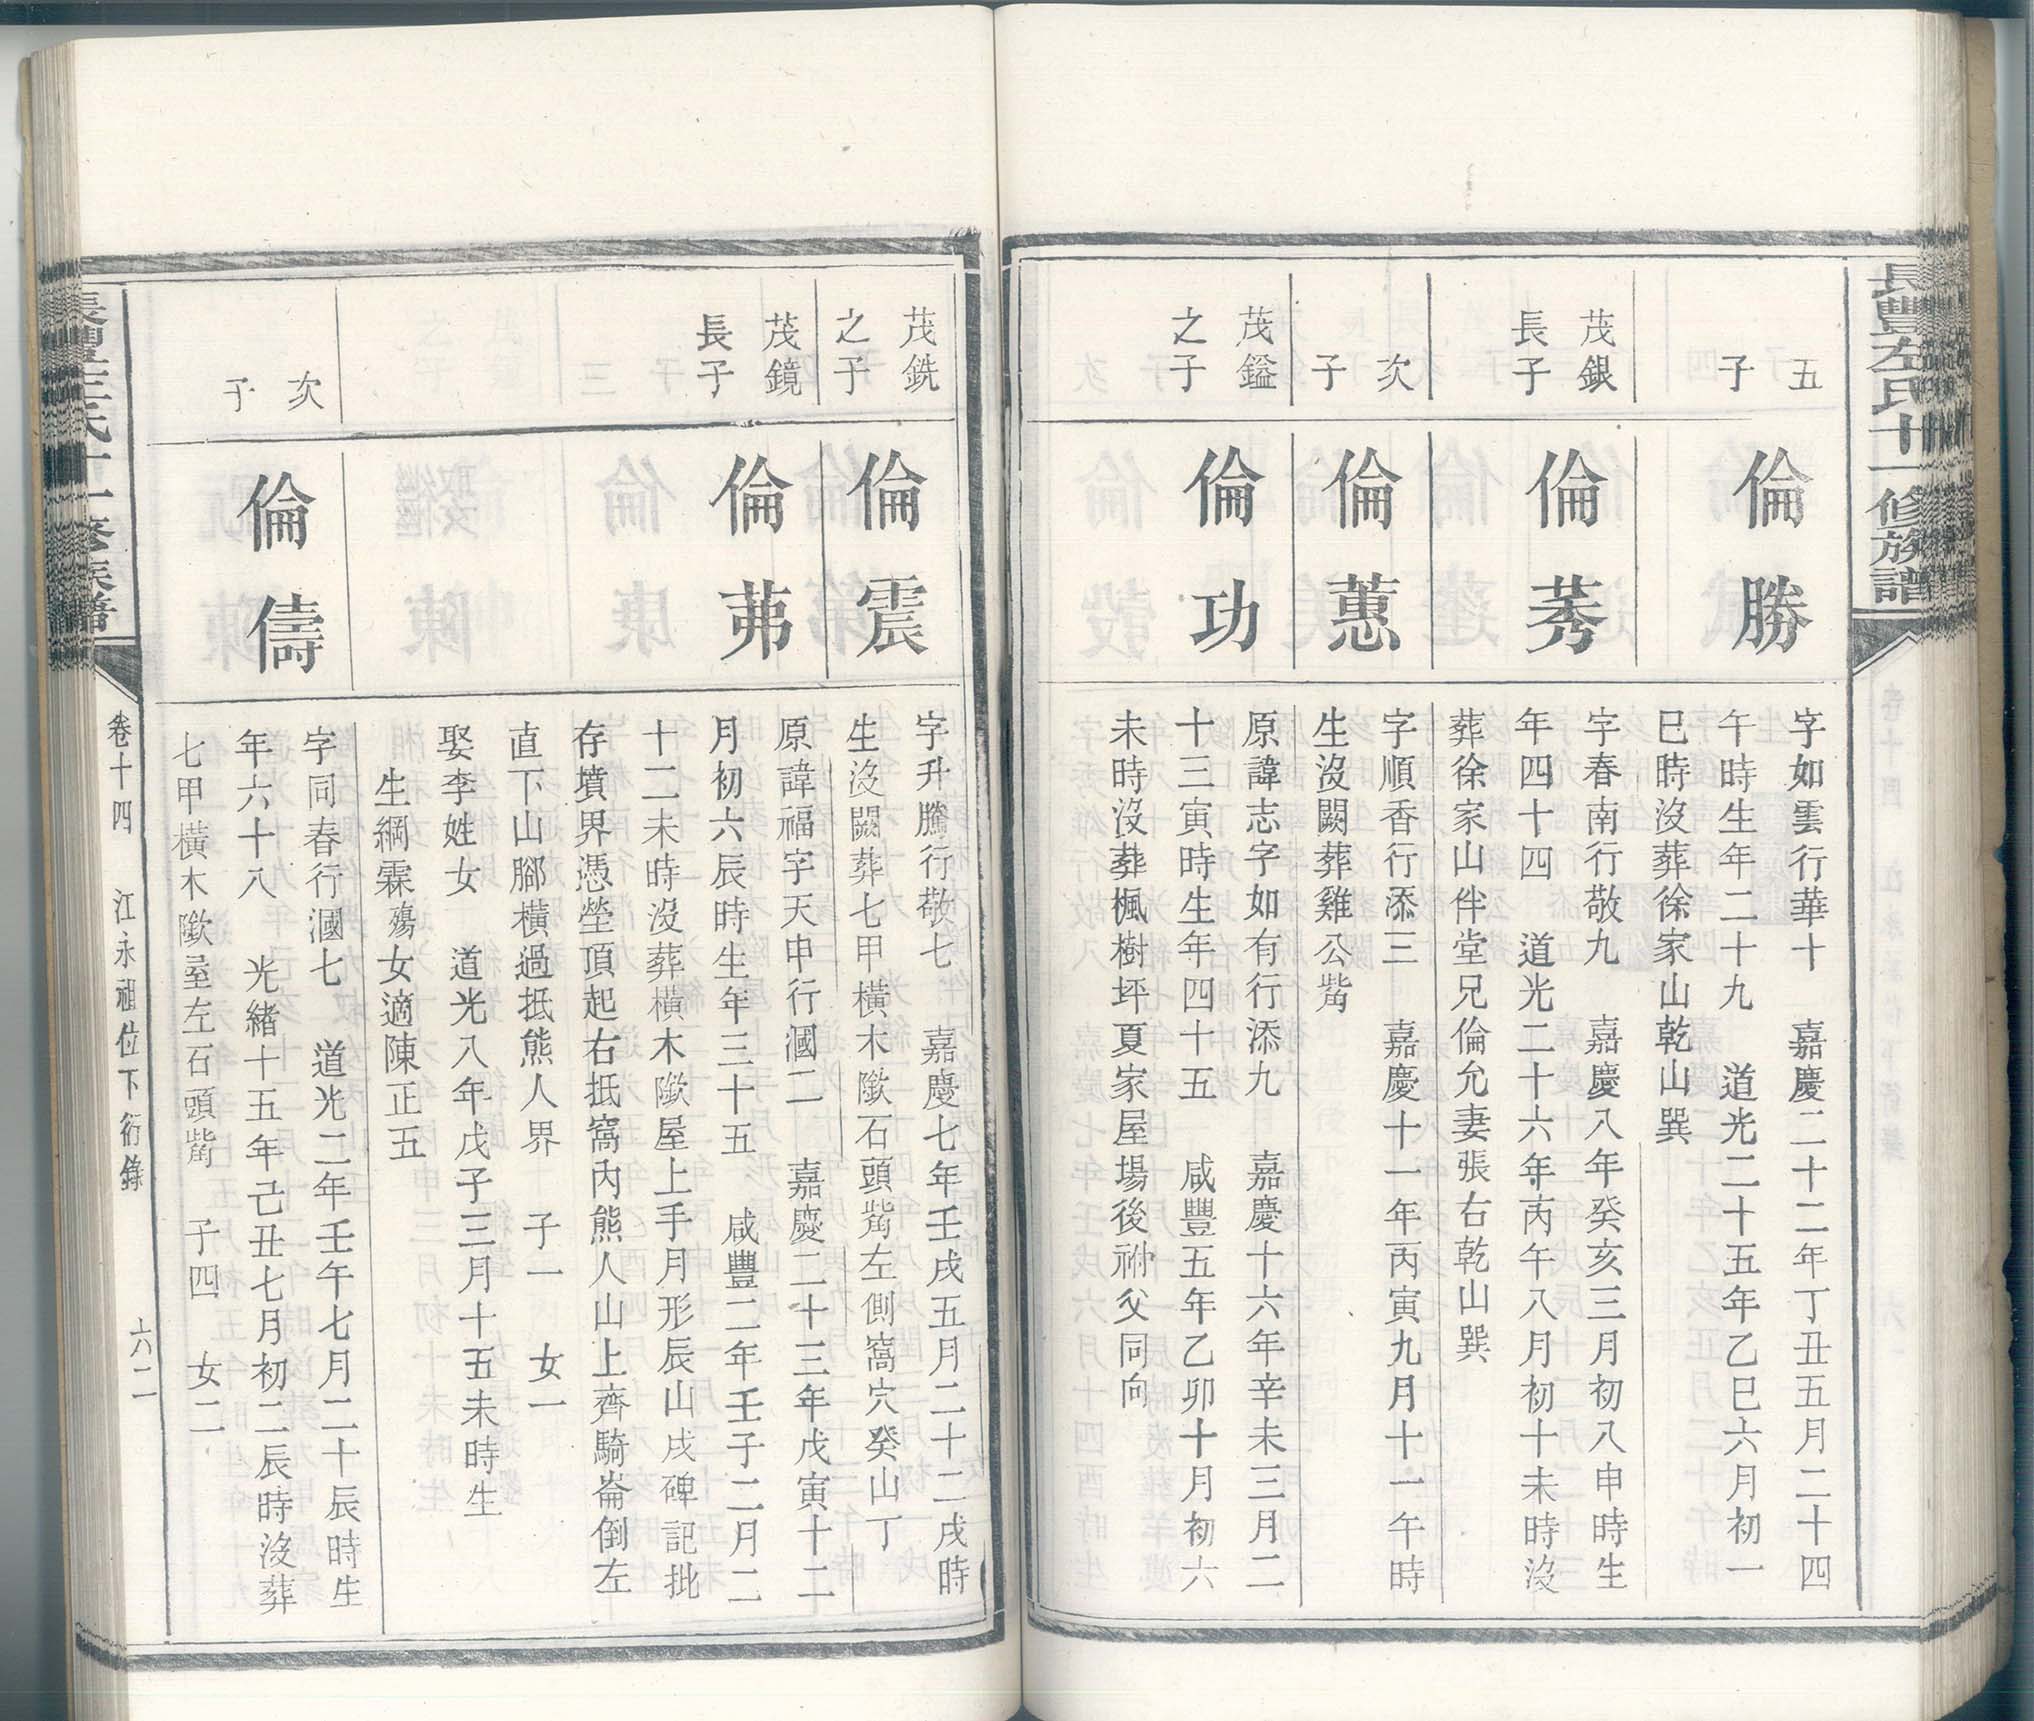 長豐左氏十一修族譜
五子
倫勝
字如雲行華十　嘉慶二十二年丁丑五月二十四
午時生年二十九　道光二十五年乙巳六月初一
巳時沒葬徐家山乾山巽
茂銀長子
倫莠
字春南行敬九　嘉慶八年癸亥三月初八申時生
年四十四　道光二十六年丙午八月初十未時沒
葬徐家山伴堂兄倫允妻張右乾山巽
次子
倫蕙
字順香行添三　嘉慶十一年丙寅九月十一午時
生沒闕葬雞公嘴
茂鎰之子
倫功
原諱志字如有行添九　嘉慶十六年辛未三月二
十三寅時生年四十五　咸豐五年乙卯十月初六
未時沒葬楓樹坪夏家屋場後祔父同向
茂銑之子
倫震
字升騰行敬七　嘉慶七年壬戌五月二十二戌時
生沒闕葬七甲橫木隞石頭嘴左側窩穴癸山丁
茂鏡長子
倫茀
原諱福字天申行漍二　嘉慶二十三年戊寅十二
月初六辰時生年三十五　咸豐二年壬子二月二
十二未時沒葬橫木隞屋上手月形辰山戌碑記批
存墳界憑塋頂起右抵窩內熊人山上齊騎崙倒左
直下山腳橫過抵熊人界　子一　女一
娶李姓女　道光八年戊子三月十五未時生
生綱霖殤女適陳正五
次子
倫儔
字同春行漍七　道光二年壬午七月二十辰時生
年六十八　光緒十五年己丑七月初二辰時沒葬
七甲橫木隞屋左石頭嘴　子四　女二
長豐左氏十一修族譜
卷十四　江永祖位下衍錄　六二